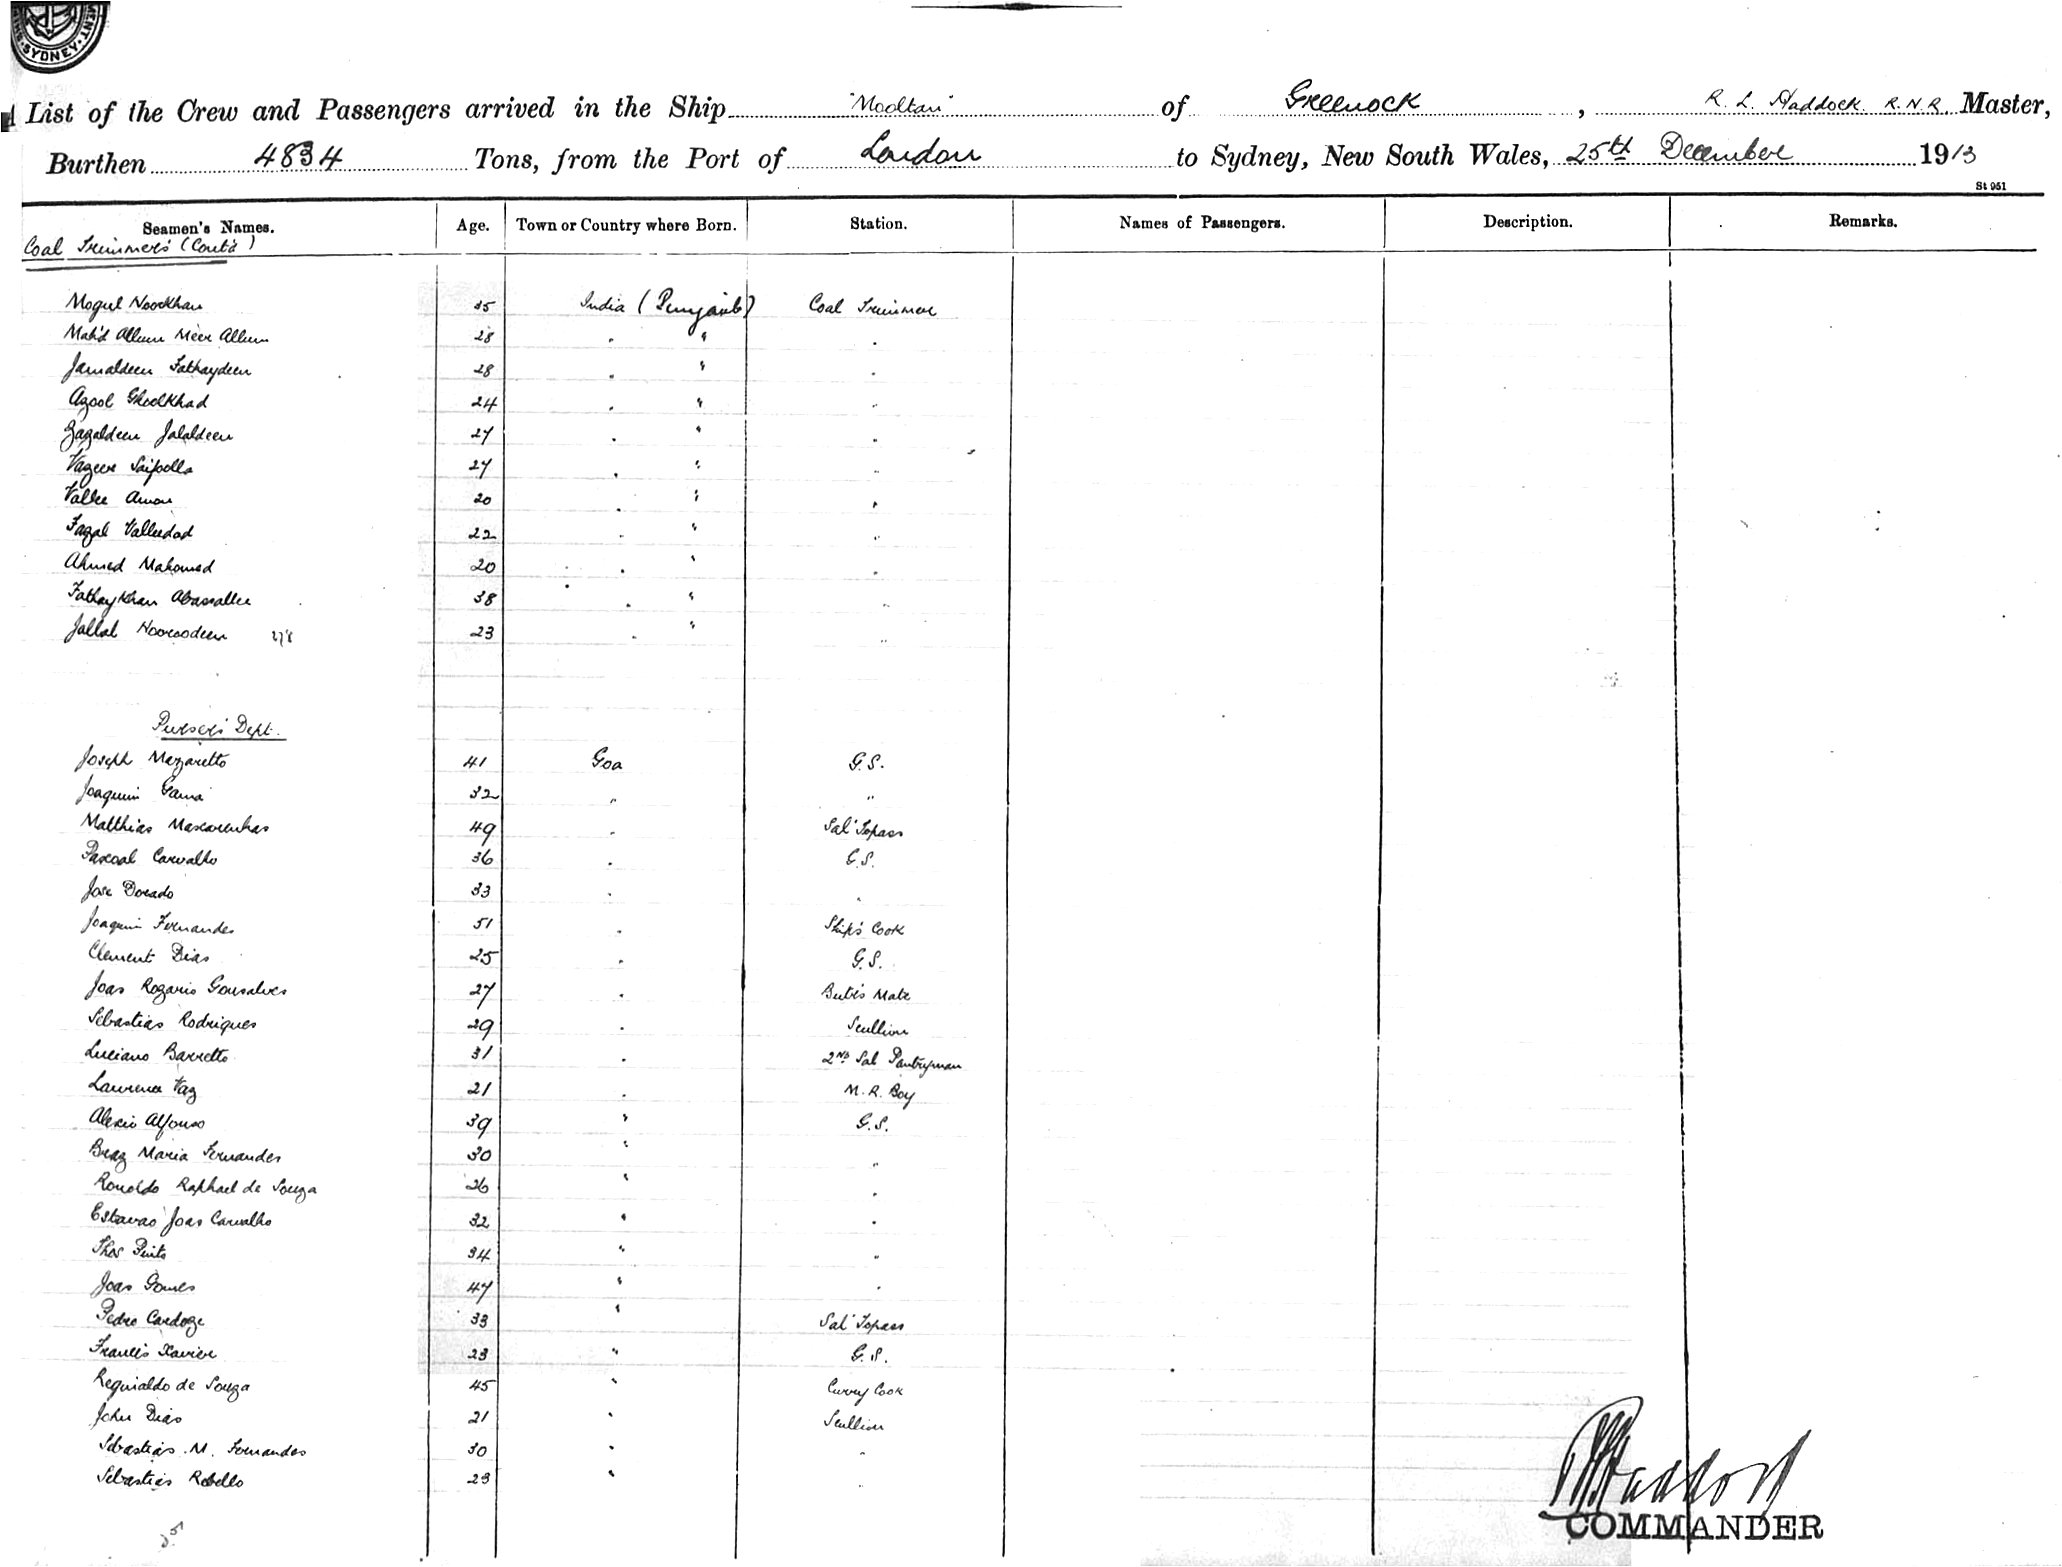 SYDNEY
List of the Crew and Passengers arrived in the Ship "Mooltan" of Greenock, R. L. Haddock. R.N.R. Master,
Burthen 4834 Tons, from the Port of London to Sydney, New South Wales, 25th December 1913
St 951
Seamen's Names. Age. Town or Country where Born. Station. Names of Passengers. Description. Remarks.
Coal Trimmers (Cont'd)
Mogul Noorkhan 35 India (Punjaub) Coal Trimmer
Mah'd Allum Meer Allum 28 " " "
Jamaldeen Fathaydeen 28 " " "
Azool Ghoolkhad 24 " " "
Zazaldeen Jalaldeen 27 " " "
Vazeer Saifoolla 27 " " "
Vallee Amon 20 " " "
Fazal Valleedad 22 " " "
Ahmed Mahomed 20 " " "
Fathaykhan Abasallee 38 " " "
Jallal Nooroodeen 23 " " "
Purser's Dept.
Joseph Mazaretto 41 Goa G.S.
Joaquim Gama 32 " "
Matthias Mascarenhas 49 " Sal' Topass
Pascoal Carvalho 36 " G.S.
Jose Dorado 33 " "
Joaquim Fernandes 51 " Ship's Cook
Clement Dias 25 " G.S.
Joas Rozario Gonsalves 27 " Butr's Mate
Sebastias Rodrigues 29 " Scullion
Luciano Barretto 31 " 2nd Sal Pantryman
Lawrence Vaz 21 " M. R. Boy
Alexio Alfonso 39 " G.S.
Braz Maria Fernandes 30 " "
Ronoldo Raphael de Souza 26 " "
Estavao Joas Carvalho 32 " "
Thos Pinto 34 " "
Joas Gomes 47 " "
Pedro Cardoze 33 " Sal' Topass
Francis Xavier 23 " G.S.
Reginaldo de Souza 45 " Curry Cook
John Dias 21 " Scullion
Sebastias M. Fernandes 30 " "
Sebastias Rebello 23 " "
R L Haddock
COMMANDER